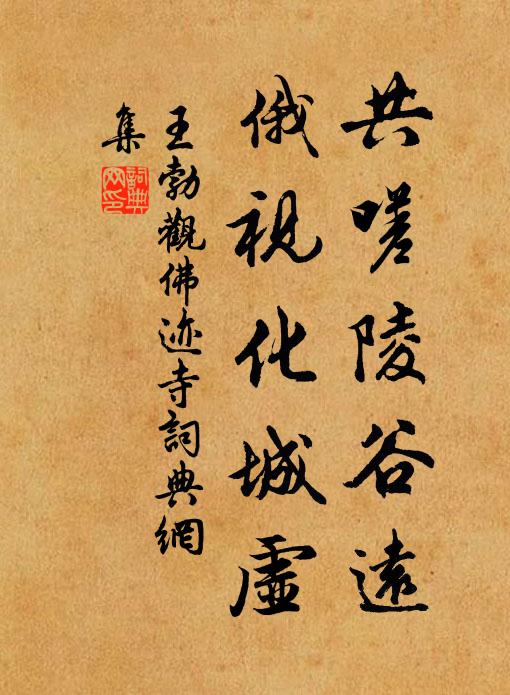 共嗟陵谷遠
俄視化城虛
王勃觀佛迹寺詞典網
集
詞典網印